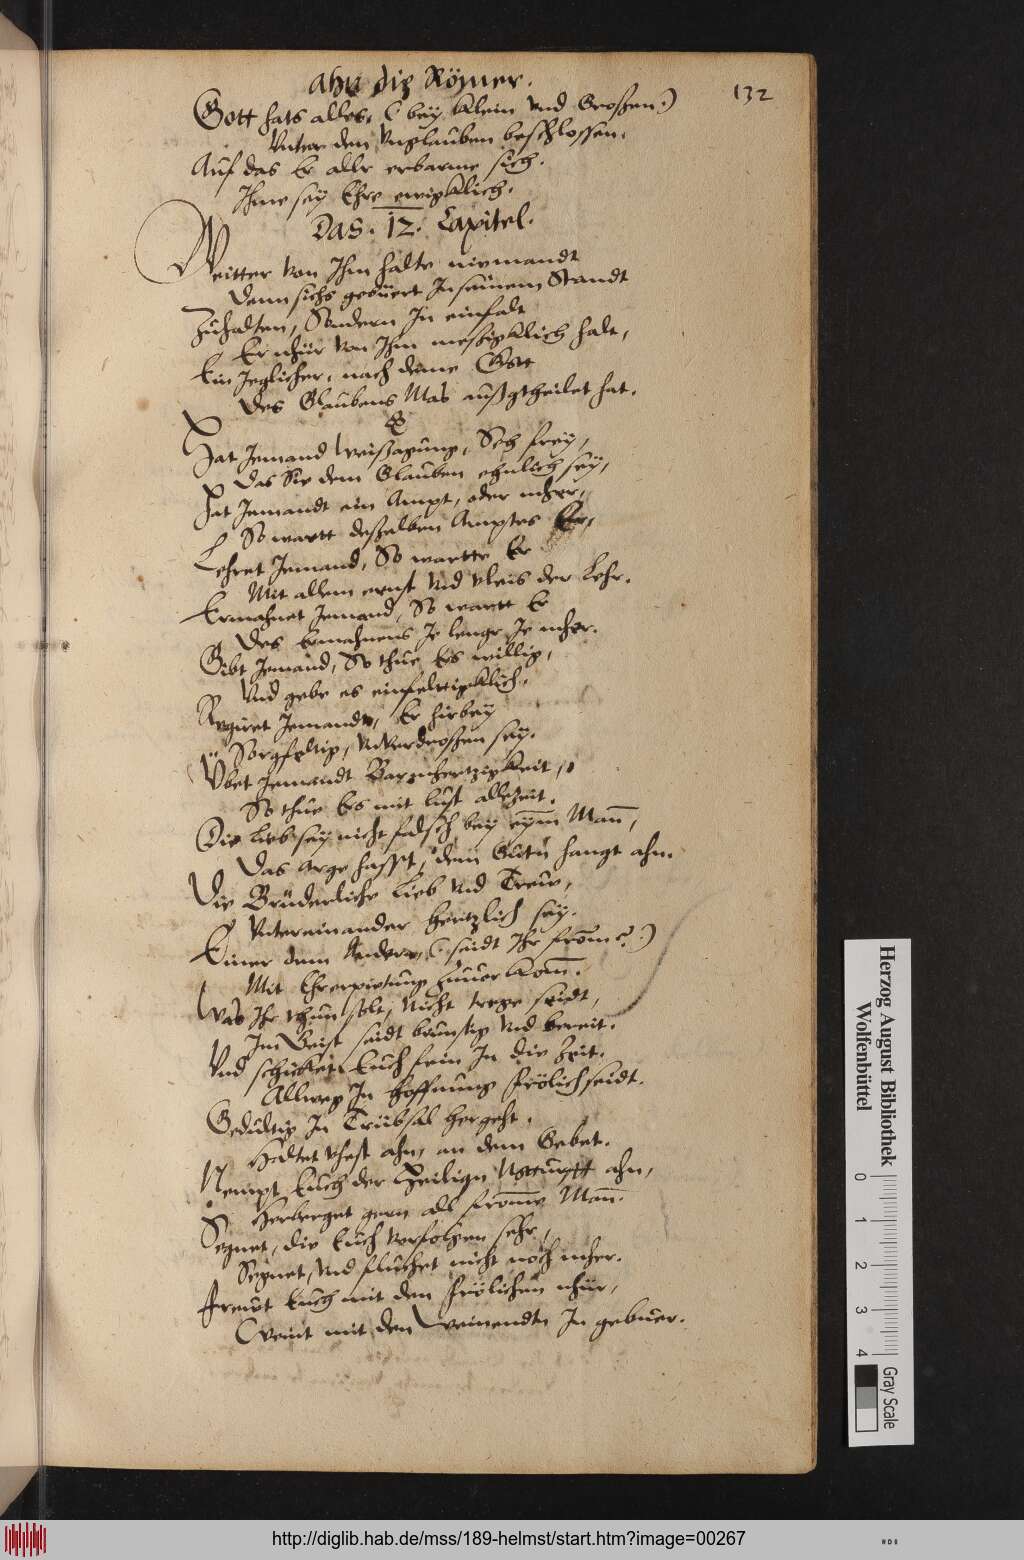 ahn die Römer.
132
Gott hats alles, (bey Klein vnd Großen.)
Vnter den Vnglauben beschlossen.
Auf das Er aller erbarme sich.
Ihme say Ehre ewigklich.
Das. 12. Capitel.
Weitter von Ihm halte niemandt
Denn sichs gebüert In seinem Standt
Zuhalten, Sondern In einfalt
Er nhür von Ihm meßigklich halt,
Ein Jeglicher, nach deme Gott
Des Glaubens Mas außgtheilet hat.
Hat Jemand Weißagung, Sey frey,
Das Sie dem Glauben ehnlich sey,
Hat Jemandt ein Ampt, oder mher,
So wartt deßelben Amptes Er,
Lehret Jemand, So wartte Er
Mit allem ernst vnd vleis der Lehr.
Ermahnet Jemand, So wartt Er
Des Ermahnens Je lenger Je mher.
Gibt Jemand, So thue Ers willig,
Vnd gebe es einfeltigklich.
Regiret Jemandt, Er hirbey
Sorgfeltig, vnverdroßen sey.
Übet Jemandt Barmhertzigkeit,
So thue Ers mit lust allezeit.
Die Lieb say nicht falsch bey eym Man,
Das Arge hasst, dem Gutn hangt ahn.
Die Brüderliche Lieb vnd Trew,
Vntereinander Hertzlich say.
Einer dem Andern, (seidt Ihr from?)
Mit Ehrerpietung zuuerkom.
Was Ihr thun solt, Nicht trege seidt,
Im Geist seidt brünstig vnd bereit.
Vnd schicket Euch fein In die Zeit.
Allweg In Hoffnung Frölich seidt.
Gedultig In Trübsal hergeht.
Haltet vhest ahn, an dem Gebet.
Nempt Euch der Heilign Notturfft ahn,
Herberget gern als fromme Man.
Segnet, die Euch verfolgen sehr,
Segnet, vnd fluchet nicht noch mher.
Frewt Euch mit den Frölichen nhür,
Weint mit den Weinendtn In gebuer.
Herzog August Bibliothek
Wolfenbüttel
0 1 2 3 4
Gray Scale
http://diglib.hab.de/mss/189-helmst/start.htm?image=00267